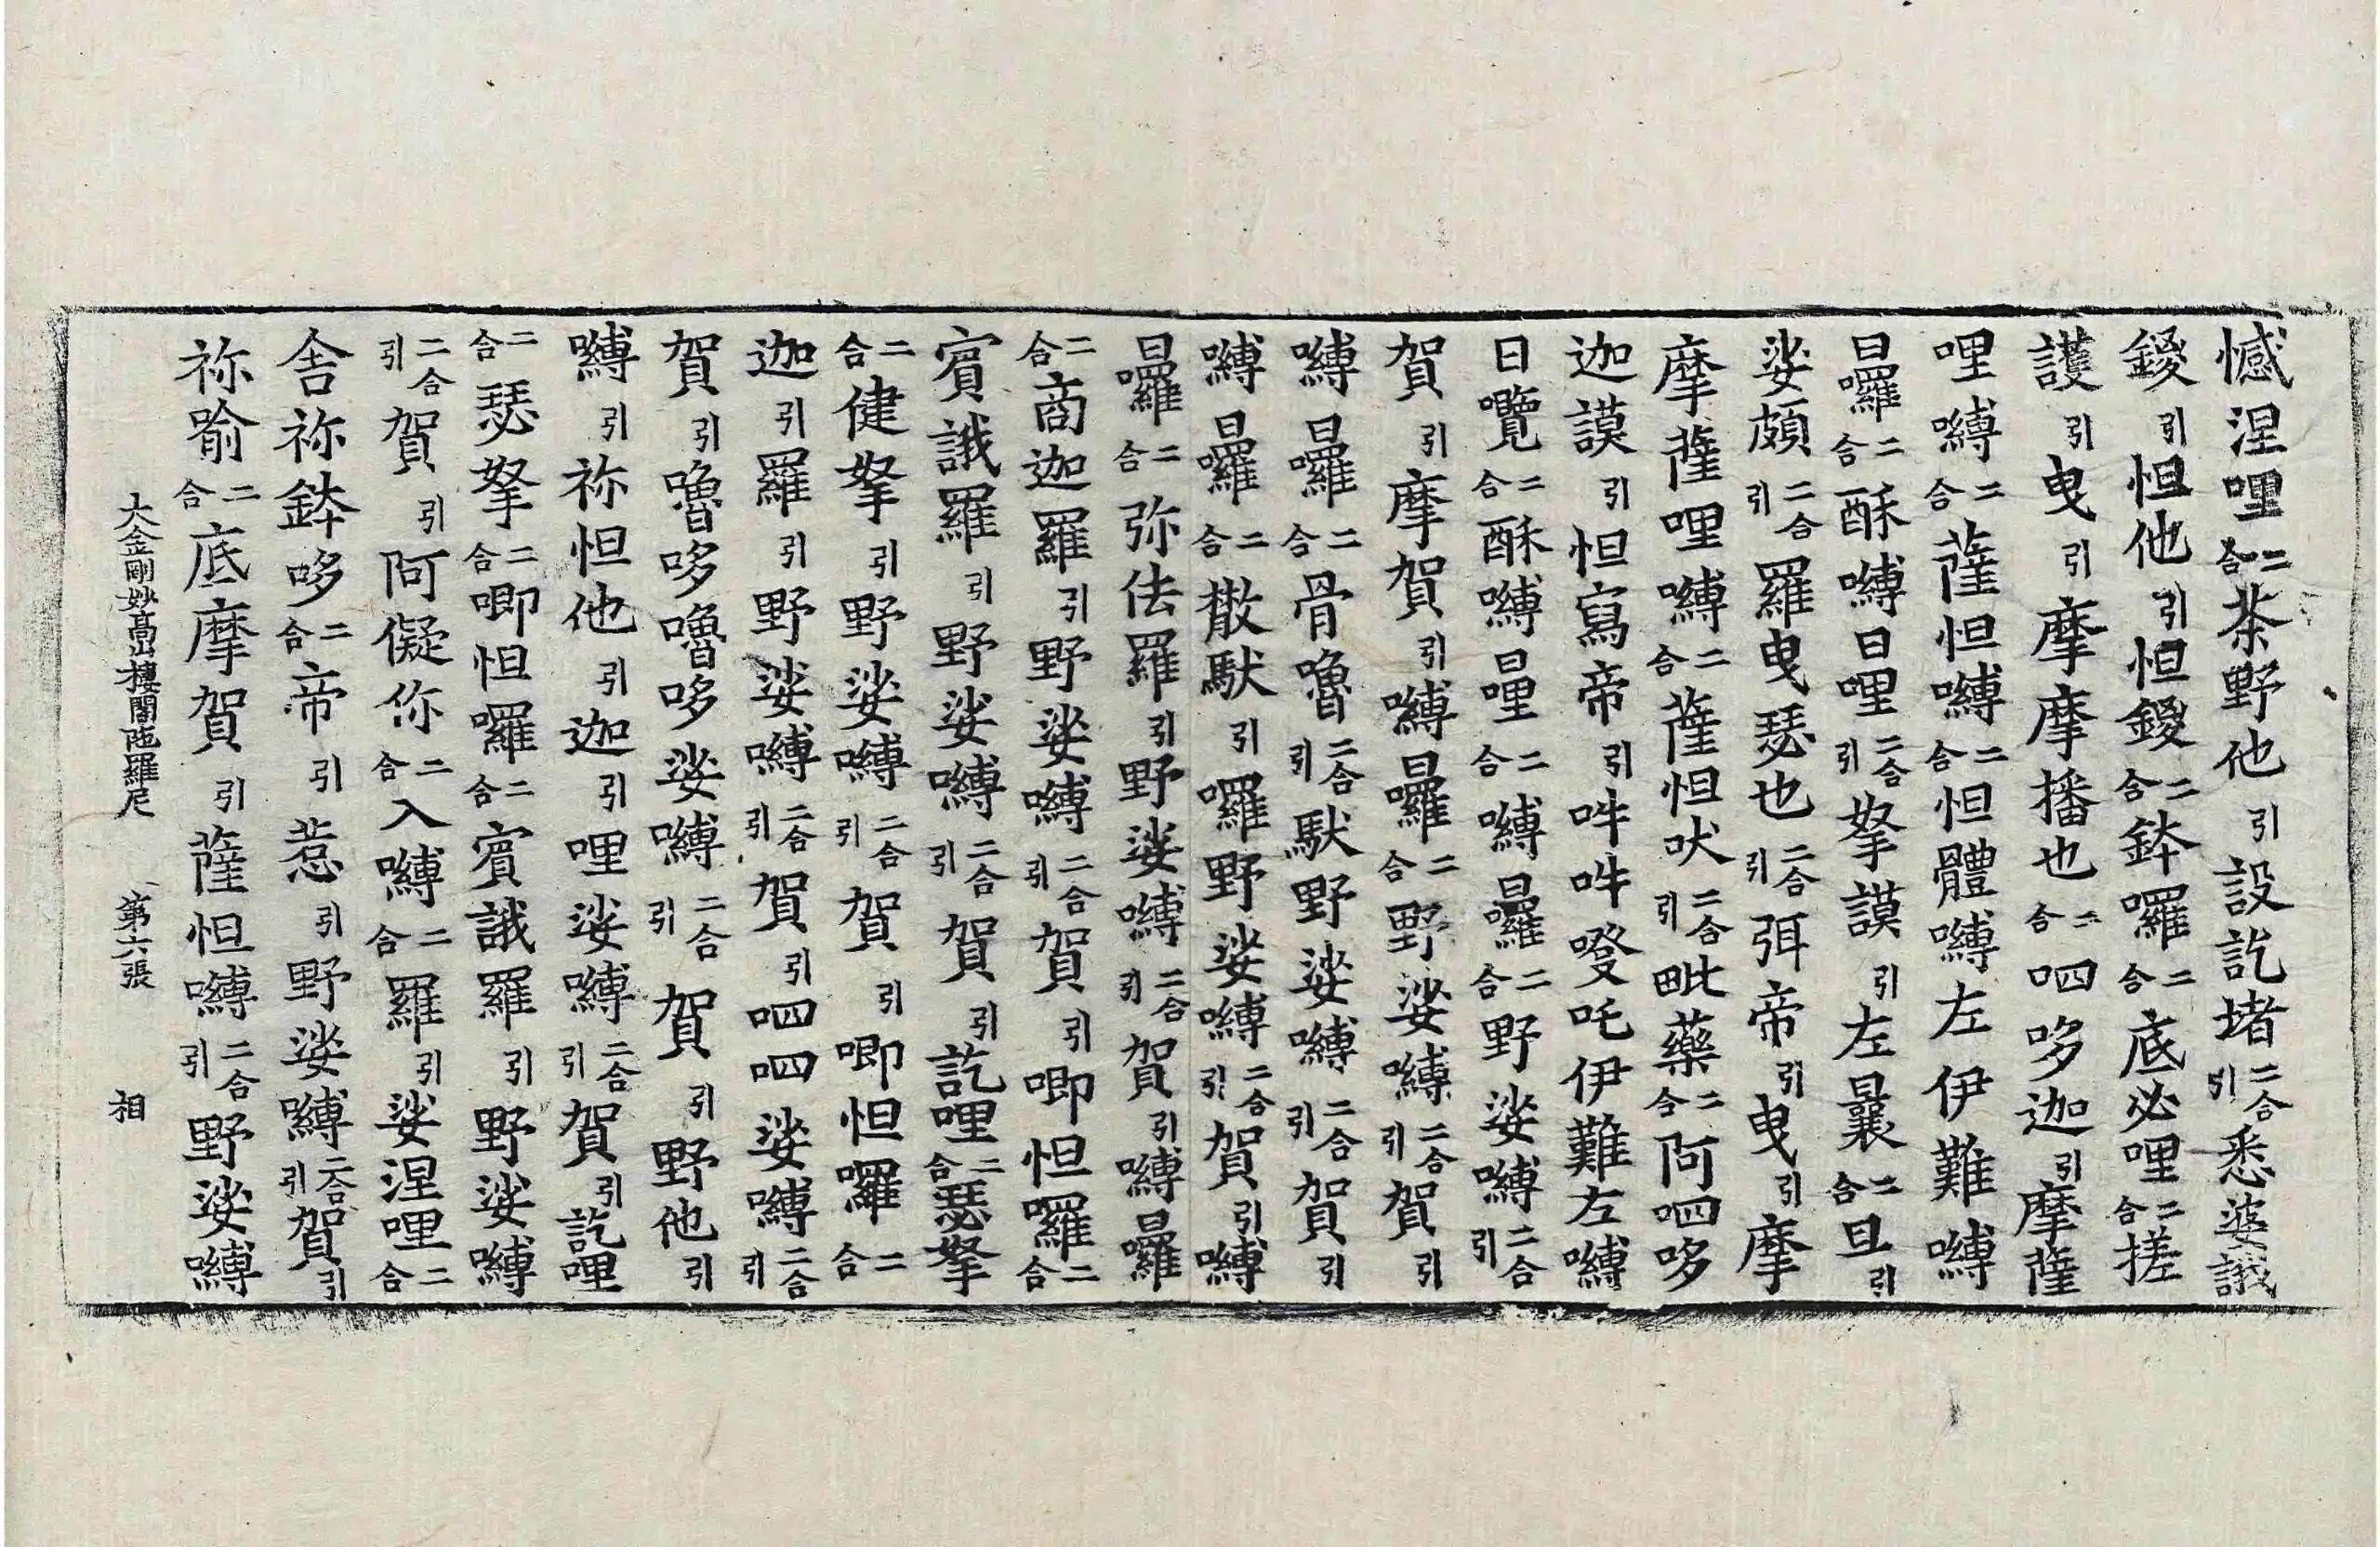 憾涅哩二合茶野他引設訖堵二合引悉婆誐
鑁引怛他引怛鑁二合鉢囉二合底必哩二合搓
護引曳引摩摩播也二合呬哆迦引摩薩
哩嚩二合薩怛嚩二合怛體嚩左伊難嚩
日囉二合酥嚩日哩二合引拏謨引左曩二合旦引
娑頗二合引羅曳瑟也二合引弭帝引曳引摩
摩薩哩嚩二合薩怛吠二合引毗藥二合阿呬哆
迦謨引怛寫帝引吽吽發吒伊難左嚩
日囕二合酥嚩日哩二合嚩日囉二合野娑嚩二合引
賀引摩賀引嚩日囉二合野娑嚩二合引賀引
嚩日囉二合骨嚕二合引馱野娑嚩二合引賀引
嚩日囉二合散馱引囉野娑嚩二合引賀引嚩
日囉二合弥佉羅引野娑嚩二合引賀引嚩日囉
二合商迦羅引野娑嚩二合引賀引唧怛囉二合
賓誐羅引野娑嚩二合引賀引訖哩二合瑟拏
二合健拏引野娑嚩二合引賀引唧怛囉二合
迦引羅引野娑嚩二合引賀引呬呬娑嚩二合引
賀引嚕哆嚕哆娑嚩二合引賀引野他引
嚩引祢怛他引迦引哩娑嚩二合引賀引訖哩
二合瑟拏二合唧怛囉二合賓誐羅引野娑嚩
二合引賀引阿儗你二合入嚩二合羅引娑涅哩二合
舍祢鉢哆二合帝引惹引野娑嚩二合引賀引
祢喻二合底摩賀引薩怛嚩二合引野娑嚩
大金剛妙高山樓閣陁羅尼 第六張 相